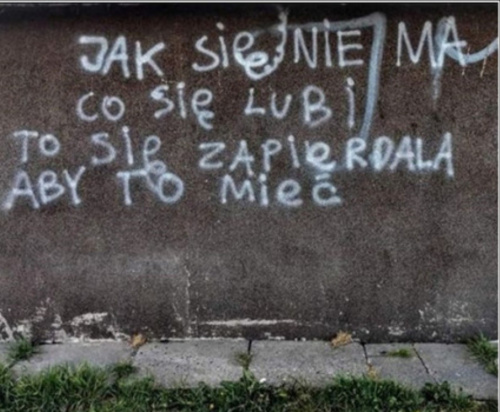 JAK Się NIE MA
CO Się LUBi
TO SIę ZAPIeRDALA
ABY TO Mieć